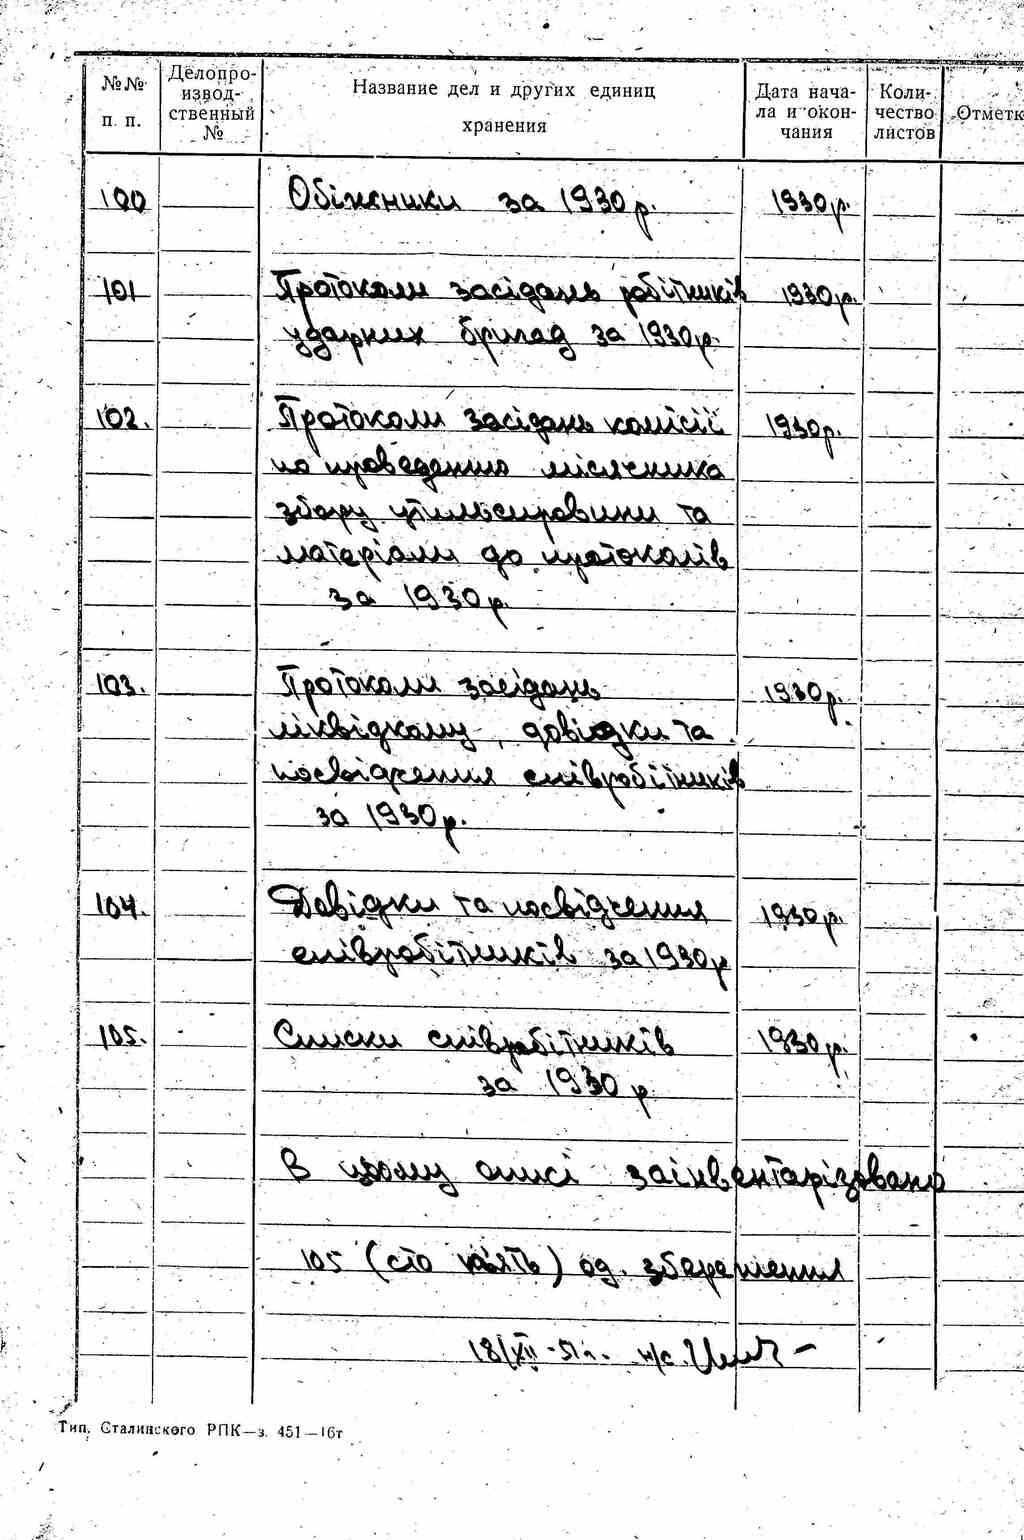 №№ п. п.
Делопро-
извод-
ственный
№
Название дел и других единиц
хранения
Дата нача-
ла и окон-
чания
Коли-
чество
листов
Отметк
100 Обіжники за 1930 р. 1930 р.
101 Протоколи засідань робітників 1930 р.
ударних бригад за 1930 р.
102. Протоколи засідань комісії 1930 р.
по проведенню місячника
збору утильсировини та
матеріали до протоколів
за 1930 р.
103. Протоколи засідань 1930 р.
ліквідкому, довідки та
посвідчення співробітників
за 1930 р.
104. Довідки та посвідчення 1930 р.
співробітників за 1930 р
105. Списки співробітників 1930 р.
за 1930 р.
В цьому описі заінвентарізовано
105 (сто п'ять) од. збереження
18/XII-51 г. н/с.
Тип. Сталинского РПК—з. 451—16т